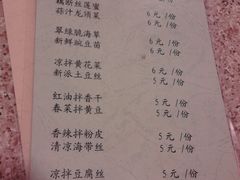 藕断丝莲蜜
蒜汁龙须菜 6 元 /份
6 元 /份
翠绿脆海草
新鲜豌豆菌 6 元 /份
6 元 /份
凉拌黄花菜
新派土豆丝 6 元 /份
5 元 /份
红油拌香干
春菜拌黄豆 5 元 /份
5 元 /份
香辣拌粉皮
清凉海带丝 5 元 /份
5 元 /份
凉拌豆腐丝
5 元 /份